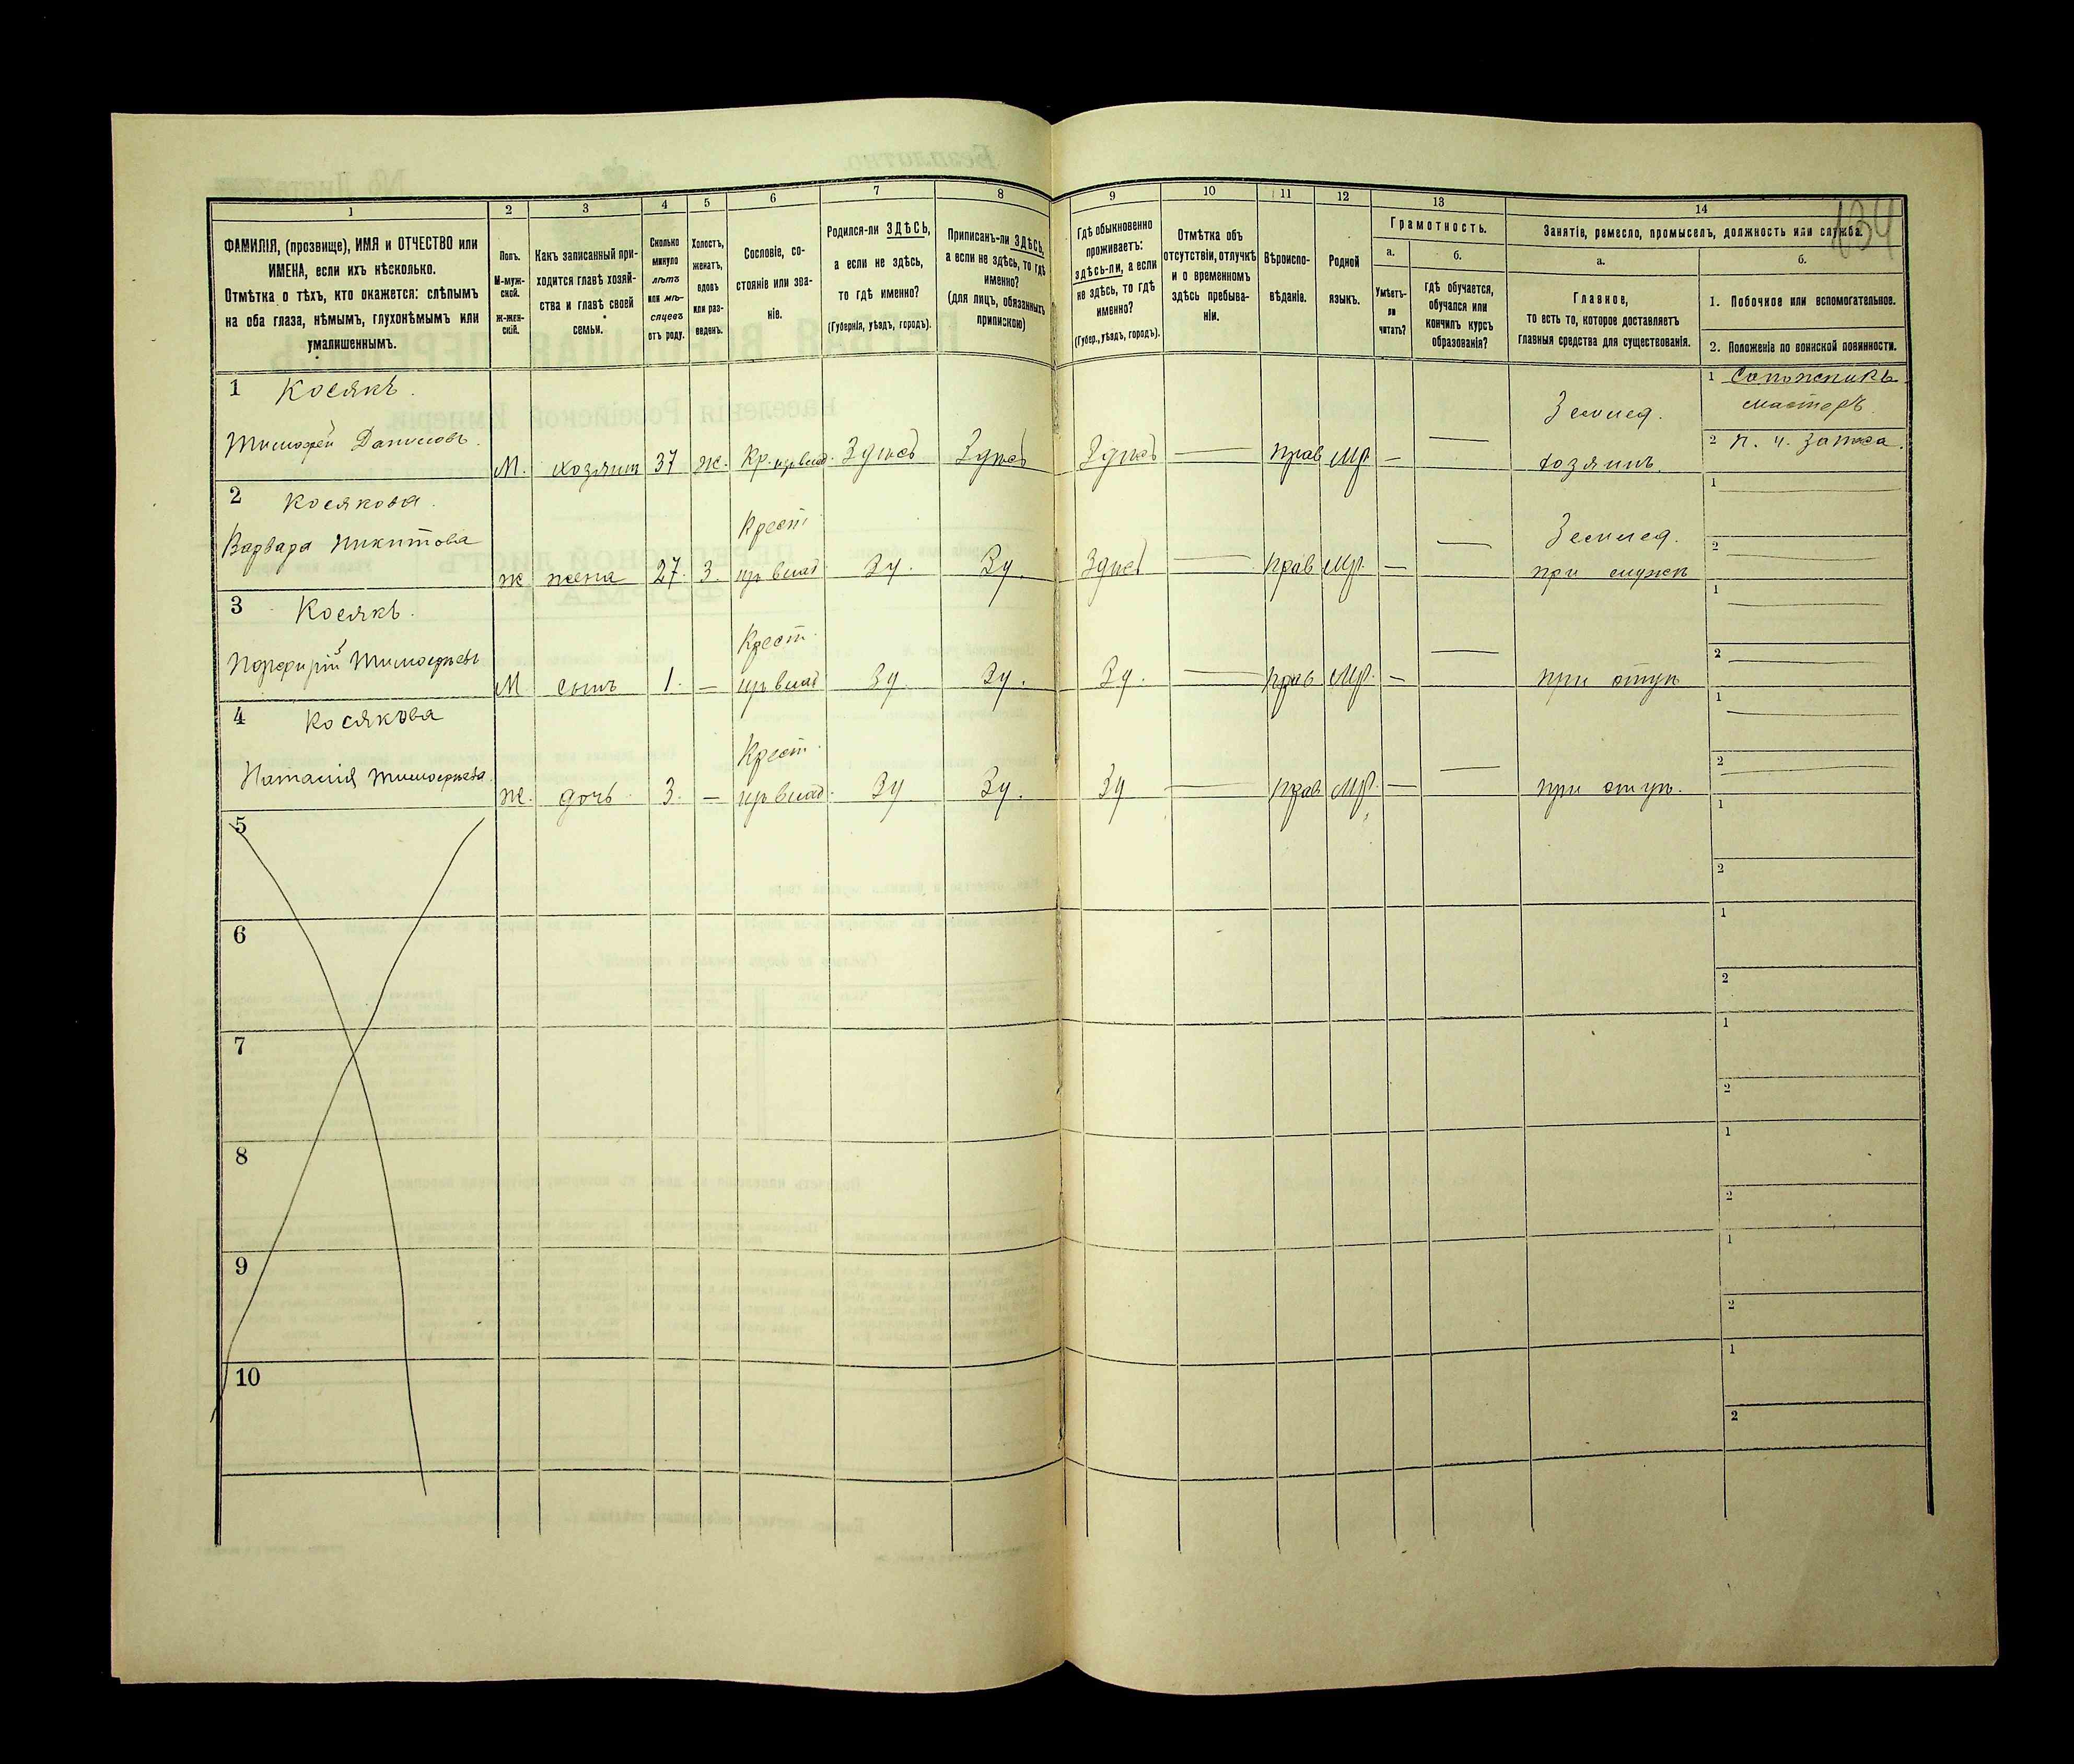 134
1 2 3 4 5 6 7 8 9 10 11 12 13 14
ФАМИЛІЯ, (прозвище), ИМЯ и ОТЧЕСТВО или
ИМЕНА, если ихъ нѣсколько.
Отмѣтка о тѣхъ, кто окажется: слѣпымъ
на оба глаза, нѣмымъ, глухонѣмымъ или
умалишеннымъ.
Полъ.
М-муж-
ской.
Ж-жен-
скій.
Какъ записанный при-
ходится главѣ хозяй-
ства и главѣ своей
семьи.
Сколько
минуло
лѣтъ
или мѣ-
сяцевъ
отъ роду.
Холостъ,
женатъ,
вдовъ
или раз-
веденъ.
Сословіе, со-
стояніе или зва-
ніе.
Родился-ли ЗДѢСЬ,
а если не здѣсь,
то гдѣ именно?
(Губернія, уѣздъ, городъ).
Приписанъ-ли ЗДѢСЬ,
а если не здѣсь, то гдѣ
именно?
(для лицъ, обязанныхъ
припискою)
Гдѣ обыкновенно
проживаетъ:
здѣсь-ли, а если
не здѣсь, то гдѣ
именно?
(Губер., уѣздъ, городъ).
Отмѣтка объ
отсутствіи, отлучкѣ
и о временномъ
здѣсь пребыва-
ніи.
Вѣроиспо-
вѣданіе.
Родной
языкъ.
Грамотность.
а.
Умѣетъ-
ли
читать?
б.
гдѣ обучается,
обучался или
кончилъ курсъ
образованія?
Занятіе, ремесло, промыселъ, должность или служба.
а.
Главное,
то есть то, которое доставляетъ
главныя средства для существованія.
б.
1. Побочное или вспомогательное.
2. Положеніе по воинской повинности.
1 Косякъ.
Тимофей Даниловъ.
М. хозяин 37 ж. Кр. изъ влад. Здѣсь Здѣсь Здѣсь — прав мр — —
Землед.
хозяинъ.
1 Сапожникъ
мастеръ
2 П. ч. запаса.
2 Косякова.
Варвара Никитова
ж жена 27. З. Крест изъ влад. Зд. Зд. Здѣсь — прав мр. — —
Землед.
при мужѣ
1
2
3 Косякъ.
Порфирій Тимофѣевъ
М сынъ 1. — Крест. изъ влад Зд. Зд. Зд. — прав мр. — —
при отцѣ
1
2
4 Косякова
Наталія Тимофѣева.
ж. дочь 3. — Крест. изъ влад. Зд Зд. Зд — прав мр. — —
при отцѣ.
1
2
5
1
2
6
1
2
7
1
2
8
1
2
9
1
2
10
1
2